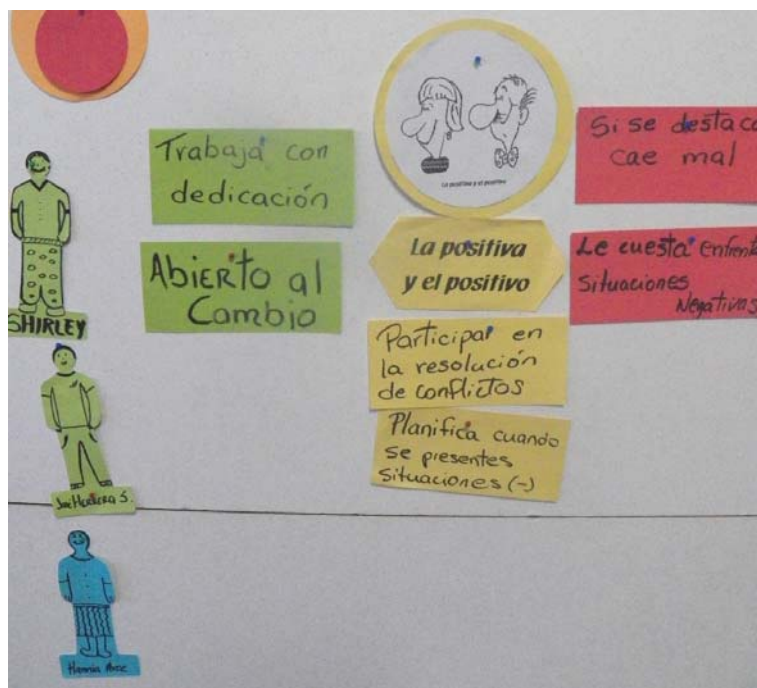 Trabaja con
dedicación
Abierto al
Cambio
SHIRLEY
José Herrera S.
Hannia
La positiva y el positivo
La positiva
y el positivo
Participar en
la resolución
de conflictos
Planifica cuando
se presentes
situaciones (-)
Si se destaca
cae mal
Le cuesta enfrenta
situaciones
Negativas